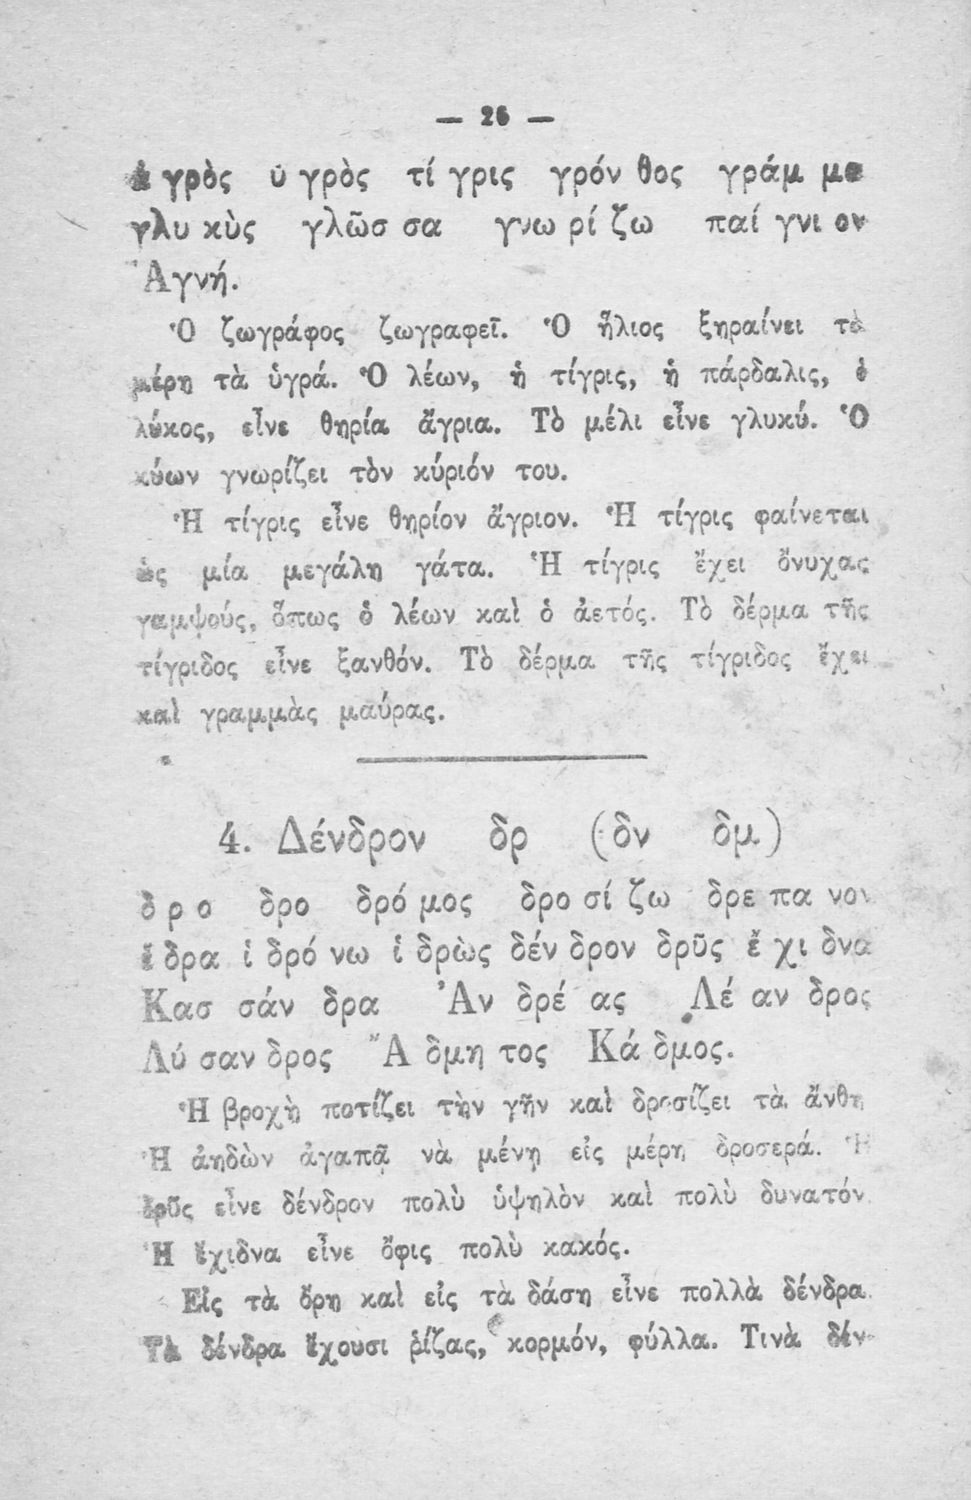 — 26 —
ἀ γρὸς ὑ γρὸς τί γρις γρόν θος γράμ μα
γλυ κὺς γλῶσ σα γνω ρί ζω παί γνι ον
Ἁγνή.
Ὁ ζωγράφος ζωγραφεῖ. Ὁ ἥλιος ξηραίνει τὰ
μέρη τὰ ὑγρά. Ὁ λέων, ἡ τίγρις, ἡ πάρδαλις, ὁ
λύκος, εἶνε θηρία ἄγρια. Τὸ μέλι εἶνε γλυκύ. Ὁ
κύων γνωρίζει τὸν κύριόν του.
Ἡ τίγρις εἶνε θηρίον ἄγριον. Ἡ τίγρις φαίνεται
ὡς μία μεγάλη γάτα. Ἡ τίγρις ἔχει ὄνυχας
γαμψούς, ὅπως ὁ λέων καὶ ὁ ἀετός. Τὸ δέρμα τῆς
τίγριδος εἶνε ξανθόν. Τὸ δέρμα τῆς τίγριδος ἔχει
καὶ γραμμὰς μαύρας.
4. Δένδρον δρ (δν δμ)
δ ρ ο δρο δρό μος δρο σί ζω δρε πα νον
ἕ δρα ἱ δρό νω ἱ δρὼς δέν δρον δρῦς ἔ χι δνα
Κασ σάν δρα Ἀν δρέ ας Λέ αν δρος
Λύ σαν δρος Ἄ δμη τος Κά δμος.
Ἡ βροχὴ ποτίζει τὴν γῆν καὶ δροσίζει τὰ ἄνθη
Ἡ ἀηδὼν ἀγαπᾷ νὰ μένῃ εἰς μέρη δροσερά. Ἡ
δρῦς εἶνε δένδρον πολὺ ὑψηλὸν καὶ πολὺ δυνατόν
Ἡ ἔχιδνα εἶνε ὄφις πολὺ κακός.
Εἰς τὰ ὄρη καὶ εἰς τὰ δάση εἶνε πολλὰ δένδρα.
Τὰ δένδρα ἔχουσι ῥίζας, κορμόν, φύλλα. Τινὰ δέν-